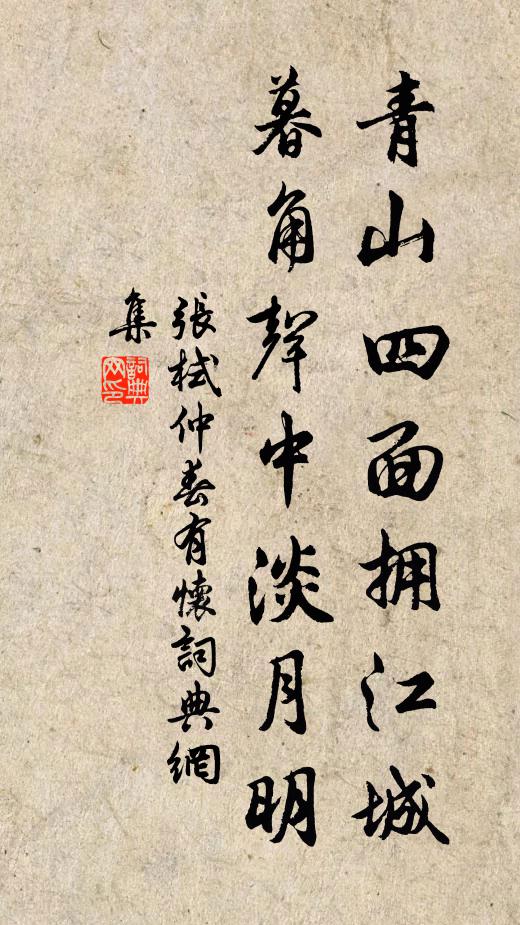 青山四面拥江城
暮角聲中淡月明
張栻仲春有懷詞典網
集
詞典
网印